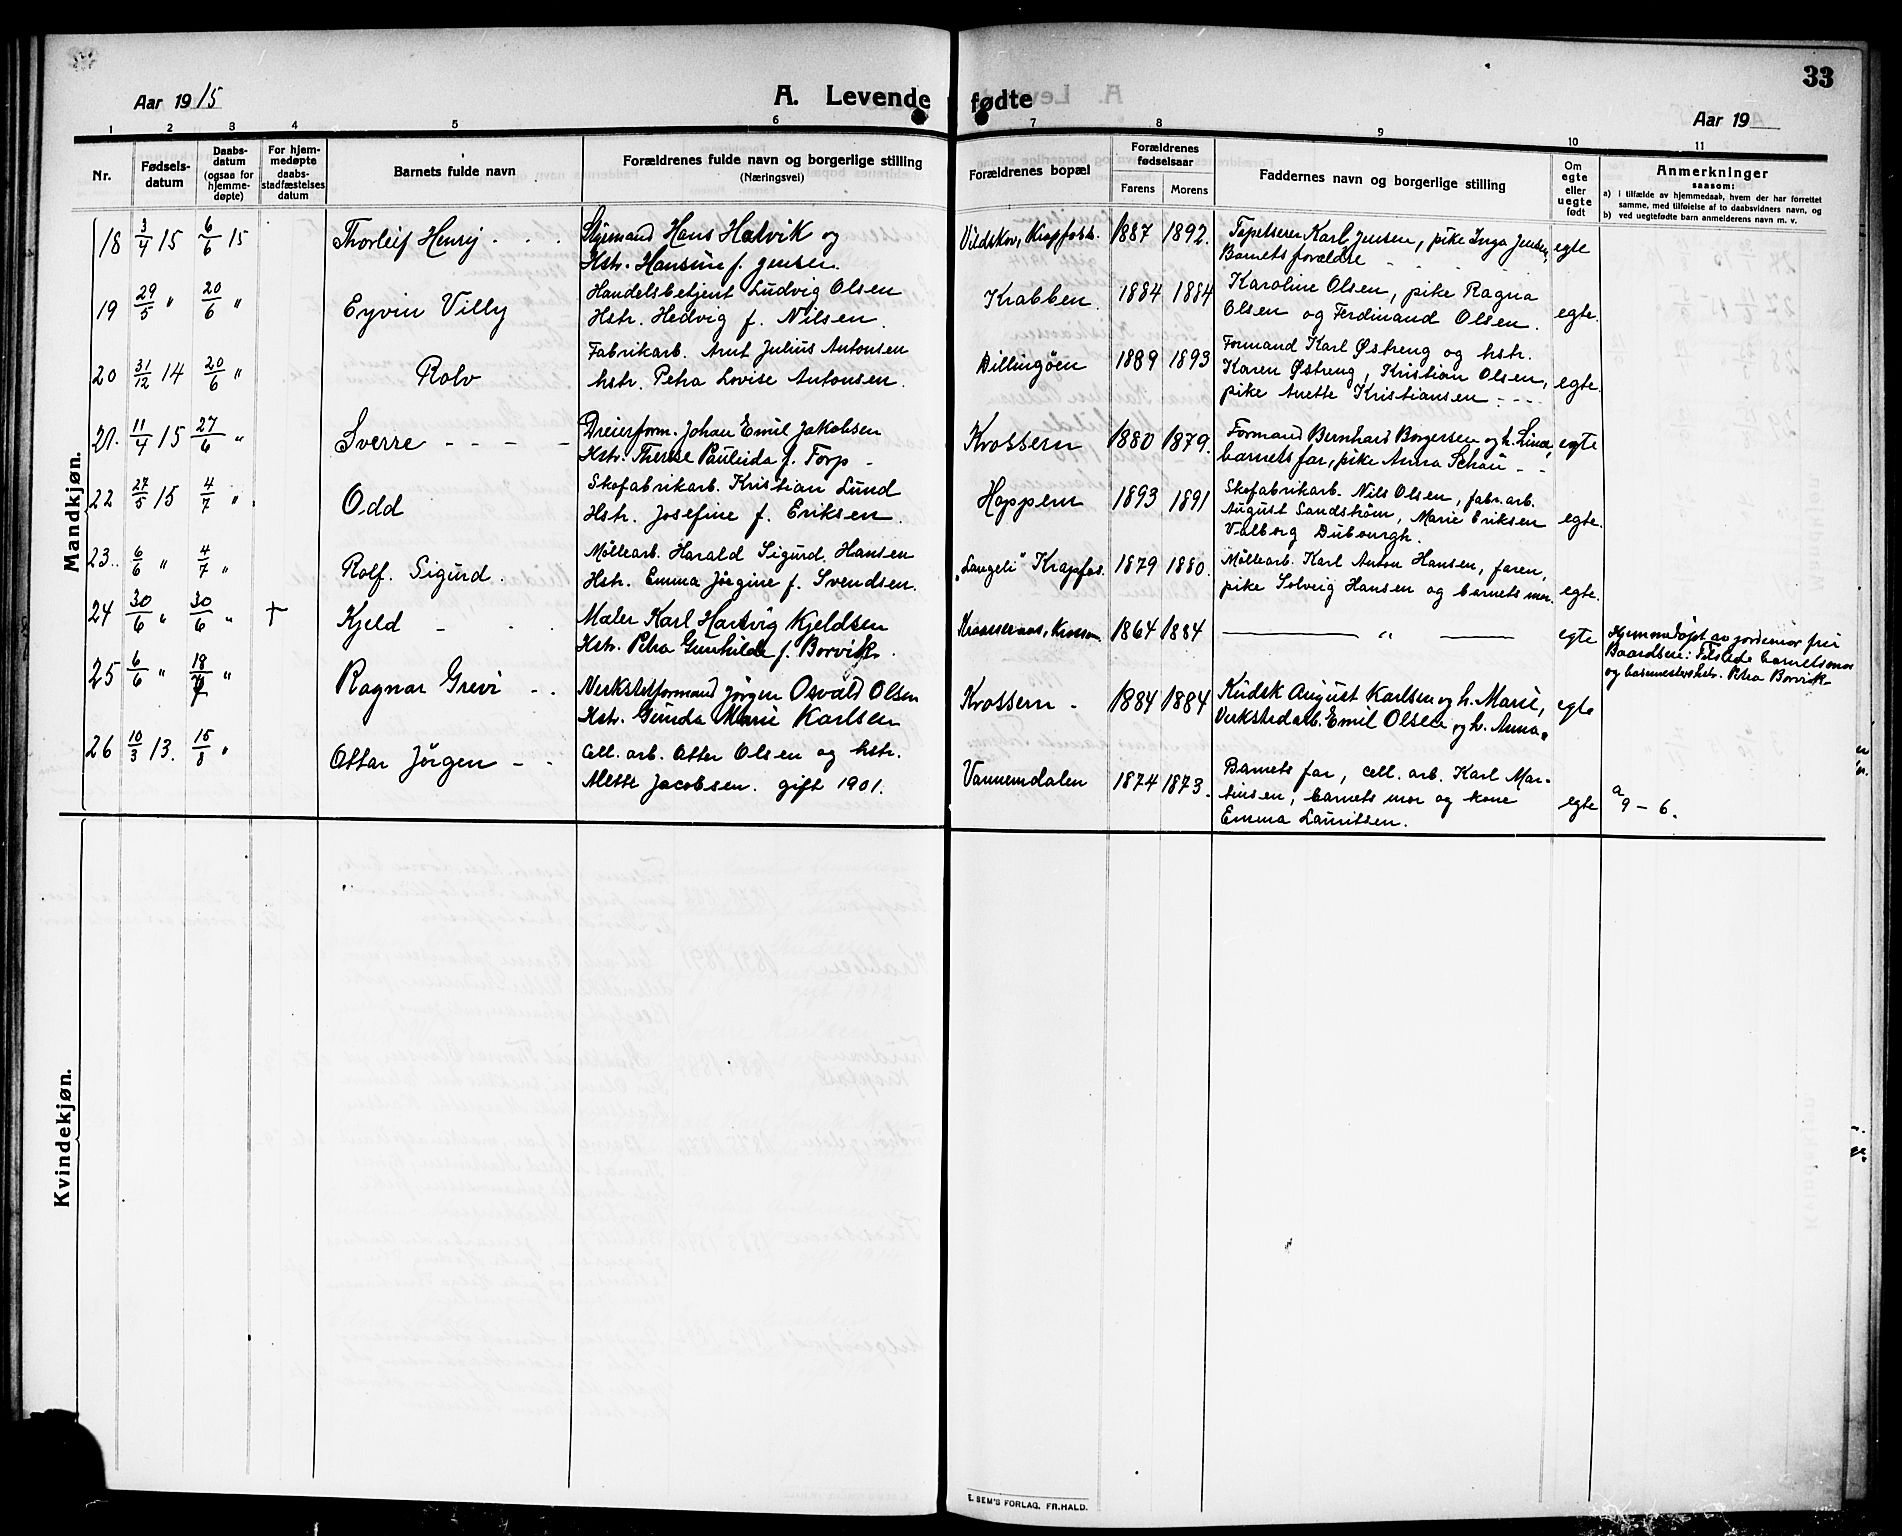 33
Aar 1915
A. Levende fødte
Aar 19
1 2 3 4 5 6 7 8 9 10 11
Nr.
Fødsels-
datum
Daabs-
datum
(ogsaa for
hjemme-
døpte)
For hjem-
medøpte
daabs-
stadfæstelses
datum
Barnets fulde navn
Forældrenes fulde navn og borgerlige stilling
(Næringsvei)
Forældrenes bopæl
Forældrenes
fødselsaar
Farens Morens
Faddernes navn og borgerlige stilling
Om
egte
eller
uegte
født
Anmerkninger
saasom:
a) i tilfælde av hjemmedaab, hvem der har forrettet
samme, med tilføielse af to daabsvidners navn, og
b) ved uegtefødte barn anmelderens navn m. v.
Mandkjøn.
18 3/4 15 6/6 15 Thorleif Henry
Styrmand Hans Halvik og
Hstr. Hansine f. Jensen.
Vildskov, Krapfoss. 1887 1892.
Tapetserer Karl Jensen, pike Inga Jensen,
Barnets forældre
egte
19 29/5 " 20/6 " Eyvin Villy
Handelsbetjent Ludvig Olsen
Hstr. Hedvig f. Nilsen.
Krabben 1884 1884
Karoline Olsen, pike Ragna
Olsen og Ferdinand Olsen.
egte.
20 31/12 14 20/6 " Rolv
Fabrikarb. Arnt Julius Antonsen
hstr. Petra Lovise Antonsen.
Dillingöen 1889 1893
Formand Karl Østreng og hstr.
Karen Østreng, Kristian Olsen,
pike Anette Kristiansen - - -
egte.
21. 11/4 15 27/6 " Sverre - - - -
Dreierform. Johan Emil Jakobsen
Hstr. Therese Pauleida f. Torp -
Krossern 1880 1879.
Formand Bernhard Borgersen og h. Lina,
barnets far, pike Anna Schau - -
egte
22 27/5 15 4/7 " Odd
Skofabrikarb. Kristian Lund
Hstr. Josefine f. Eriksen.
Hoppern 1893 1891
Skofabrikarb. Nils Olsen, fabr.arb.
August Sandström, Marie Eriksen
Valborg Dubourgh.
egte.
23. 6/6 " 4/7 " Rolf Sigurd.
Möllearb. Harald Sigurd Hansen
Hstr. Emma Jörgine f. Svendsen.
"Langeli" Krapfos. 1879 1880.
Möllearb. Karl Anton Hansen, faren,
pike Solveig Hansen og barnets mor.
egte.
24 30/6 " 30/6 " † Kjeld - -
Maler Karl Hartvig Kjeldsen
Hstr. Petra Gunhilde f. Borvik.
1864 1884
— " —
egte
Hjemmedøpt av jordemor fru
Baardsen: Tilstede barnets mor
og Petra Borvik
25 6/6 " 18/7 " Ragnar Grevi - -
Verkstedformand Jörgen Osvald Olsen
Hstr. Gunda Marie Karlsen
Krossern - 1884 1884
Kudsk August Karlsen og h. Marie,
Verkstedarb. Emil Olsen og h. Anna.
egte
26 10/3 13. 15/8 " Ottar Jörgen - -
Cell. arb. Otter Olsen og hstr.
Alette Jacobsen. gift 1901.
Vannemdalen 1874 1873.
Barnets far, cell. arb. Karl Mar-
tinsen, barnets mor og kone
Emma Lauritsen.
egte
a 9 - 6.
Kvindekjøn.
E. SEM'S FORLAG, FR.HALD.